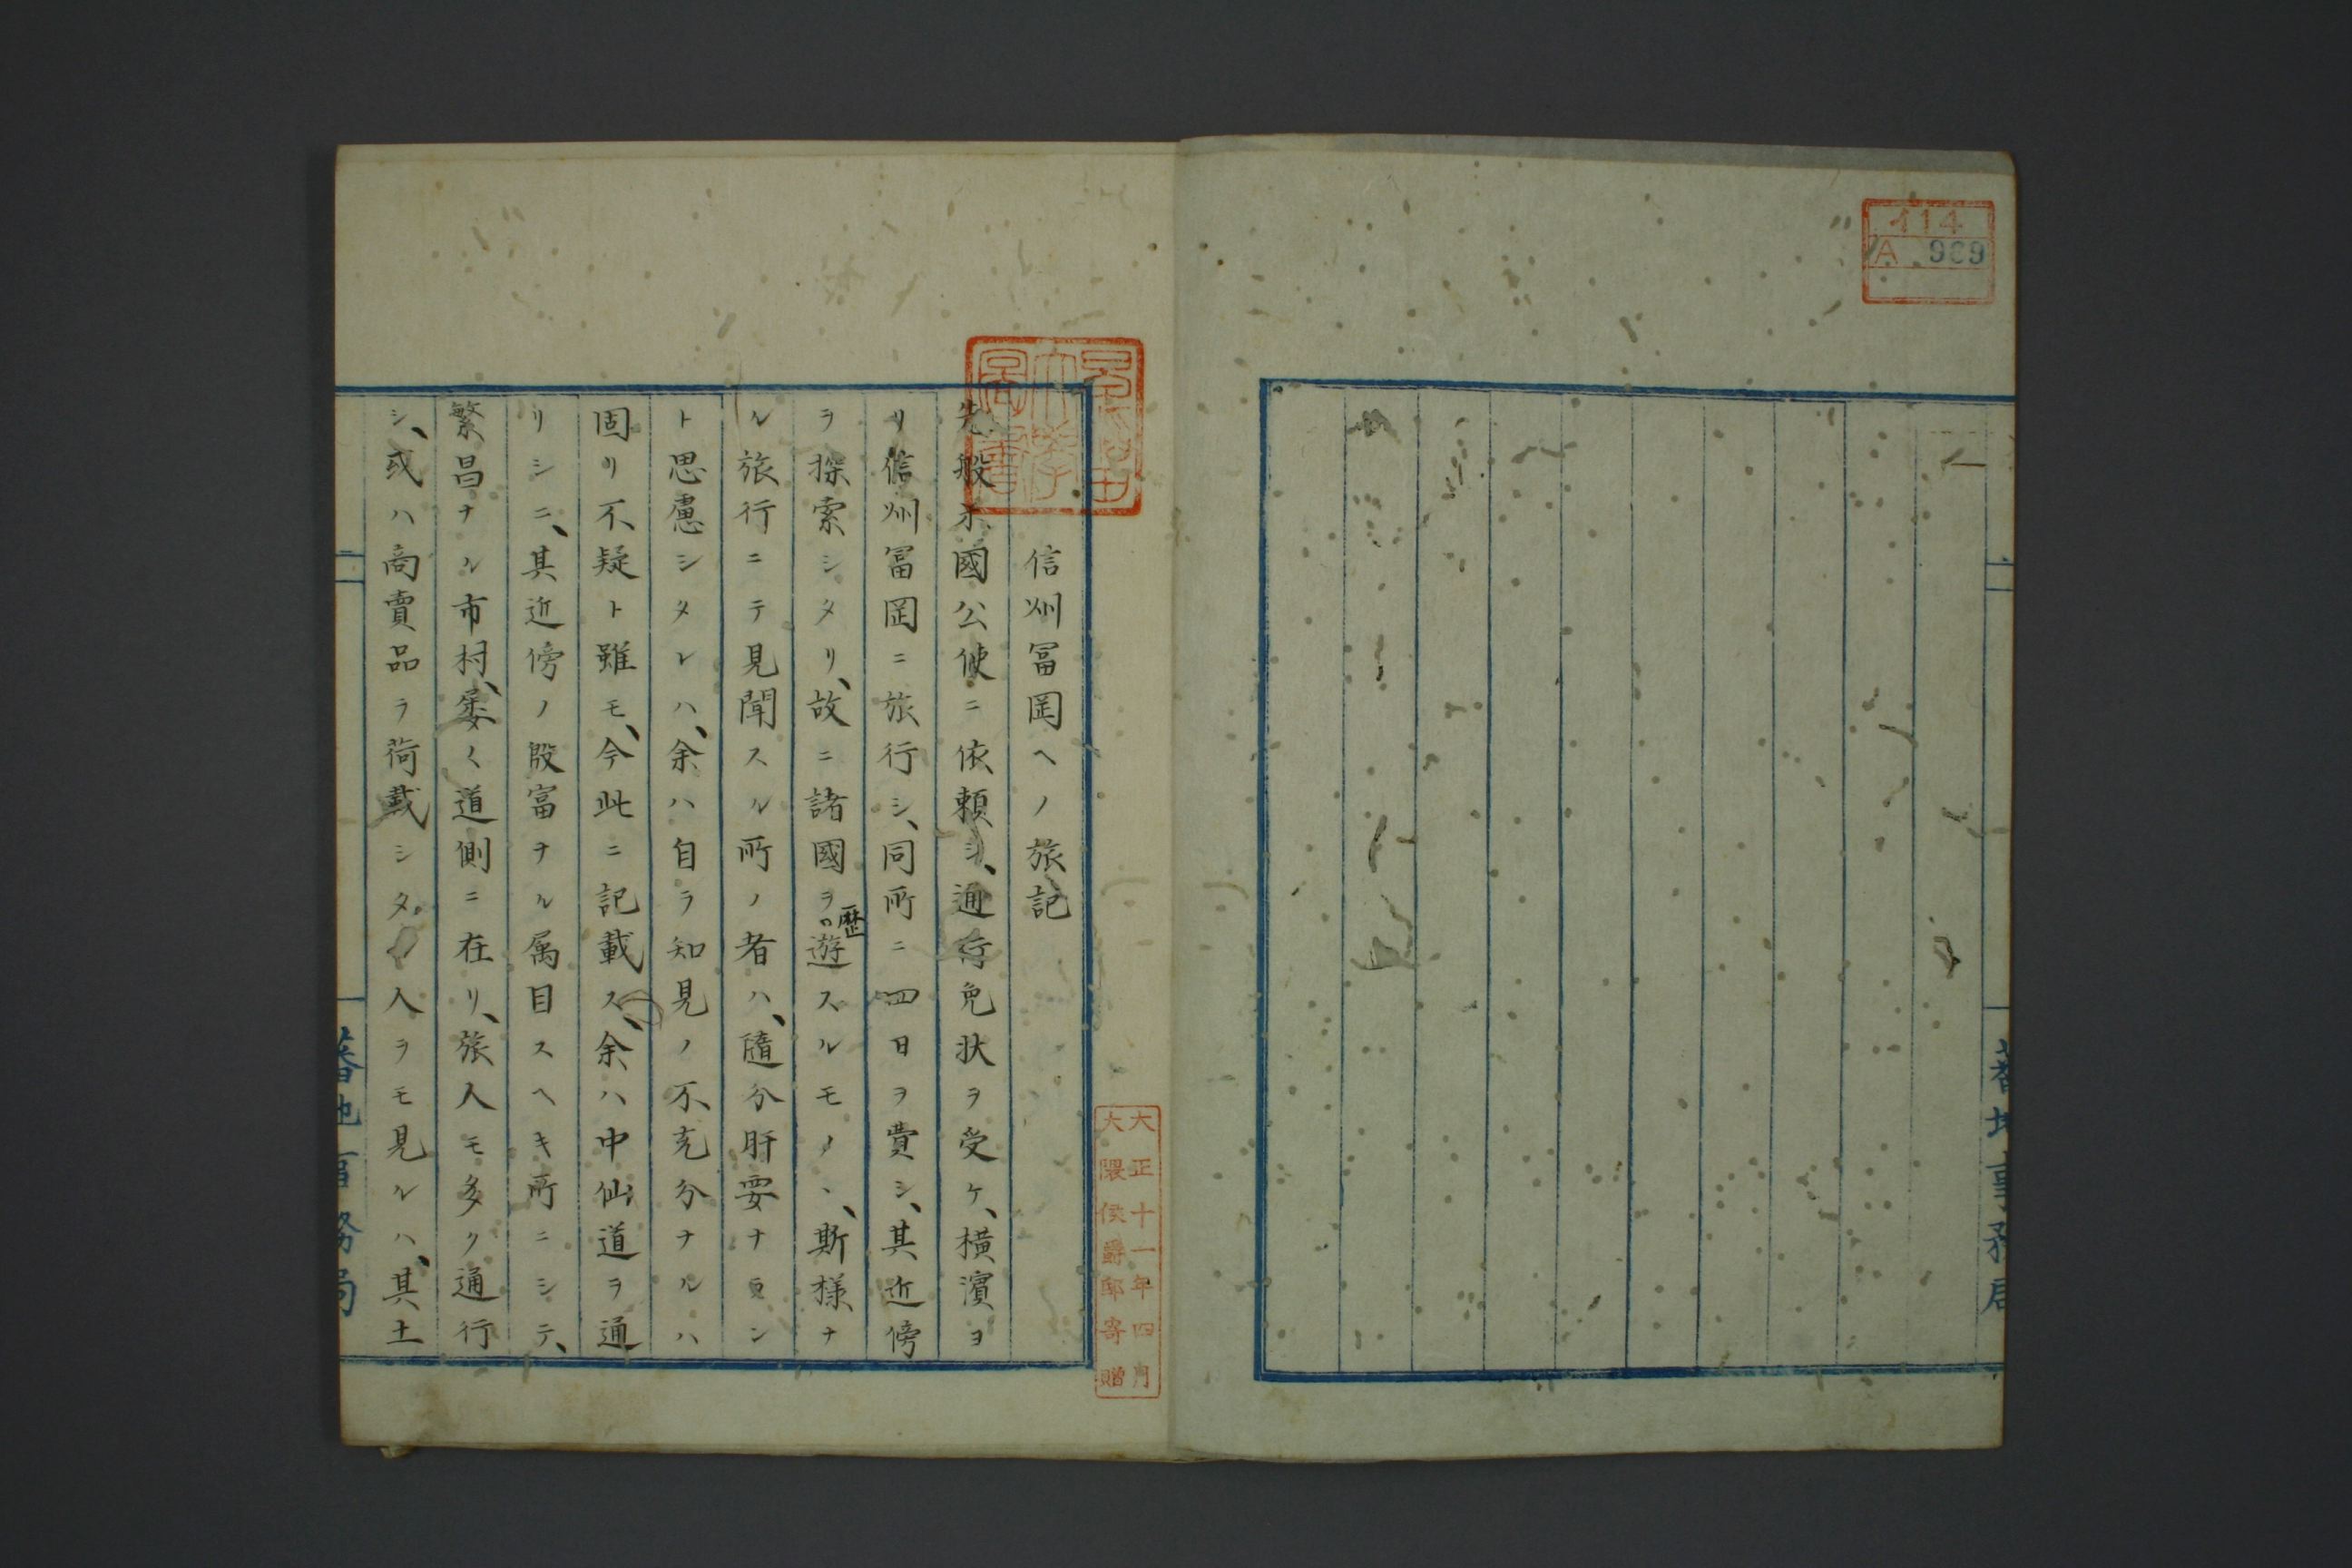 イ14
A 989
蕃地事務局
早稲田大學圖書
大正十一年四月
大隈侯爵邸寄贈
信州冨岡ヘノ旅記
先般米國公使ニ依頼シ、通行免状ヲ受ケ、横濱ヨ
リ信州冨岡ニ旅行シ、同所ニ四日ヲ費シ、其近傍
ヲ探索シタリ、故ニ諸國ヲ歴遊スルモノヽ、斯様ナ
ル旅行ニテ見聞スル所ノ者ハ、隨分肝要ナラン
ト思慮シタレハ、余ハ自ラ知見ノ不充分ナルハ
固リ不疑ト雖モ、今此ニ記載ス、余ハ中仙道ヲ通
リシニ、其近傍ノ殷富ナル属目スヘキ所ニシテ、
繁昌ナル市村、屡〻道側ニ在リ、旅人モ多ク通行
シ、或ハ商賣品ヲ荷載シタル人ヲモ見ルハ、其土
蕃地事務局